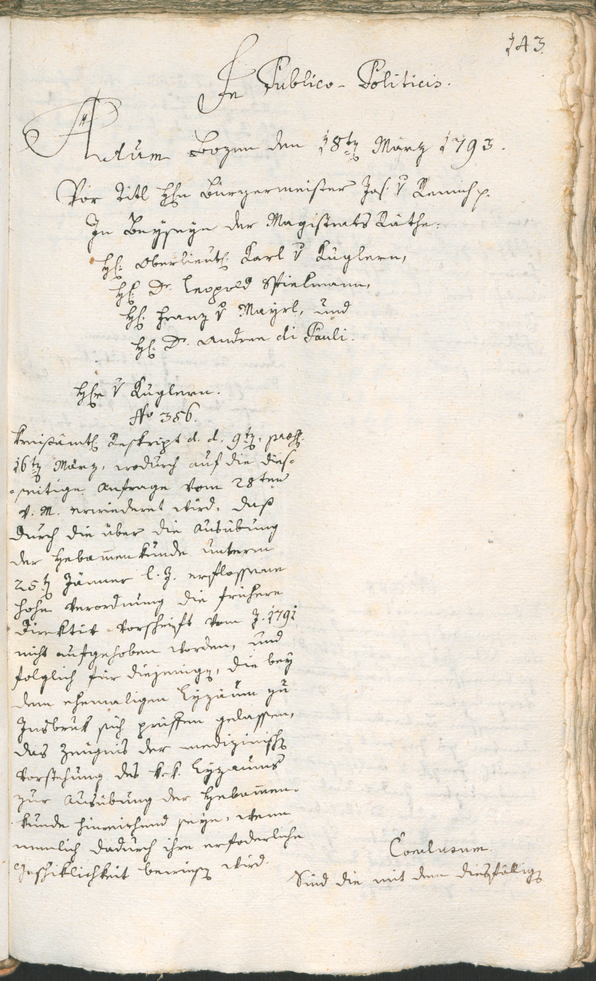 143.
In Publico-Politicis.
Actum Bozen den 18ten März 1793.
Vor Titl Hhn Bürgermeister Jos. v Remich p.
In Beyseyn der Magistrats Räthe.
HH. Oberlieut. Karl v Kuglern,
HH. Dr. Leopold Spielmann,
HH. Franz v Mayrl, und
HH. Dr. Andrea di Pauli.
Hhr v Kuglern.
No 356.
Kreisämtl. Reskript d. d. 9ten, praes.
16ten März, wodurch auf die dies-
seitige Anfrage vom 28ten
v. M. erwiederet wird, daß
durch die über die Ausübung
der Hebammenkunde unterm
25ten Jänner l. J. erflossene
hohe Verordnung die frühere
Direktiv-Vorschrift vom J. 1791
nicht aufgehoben worden, und
folglich für diejenige, die bey
dem ehemaligen Lyzäum zu
Insbruk sich prüffen gelassen,
das Zeugnis der medizinisch
Vorstehung des k. k. Lyzäums
zur Ausübung der Hebammen-
kunde hinreichend seye, wenn
nemlich dadurch ihre erforderliche
Geschiklichkeit bewiesen wird.
Conclusum.
Sind die mit dem diesfälligen